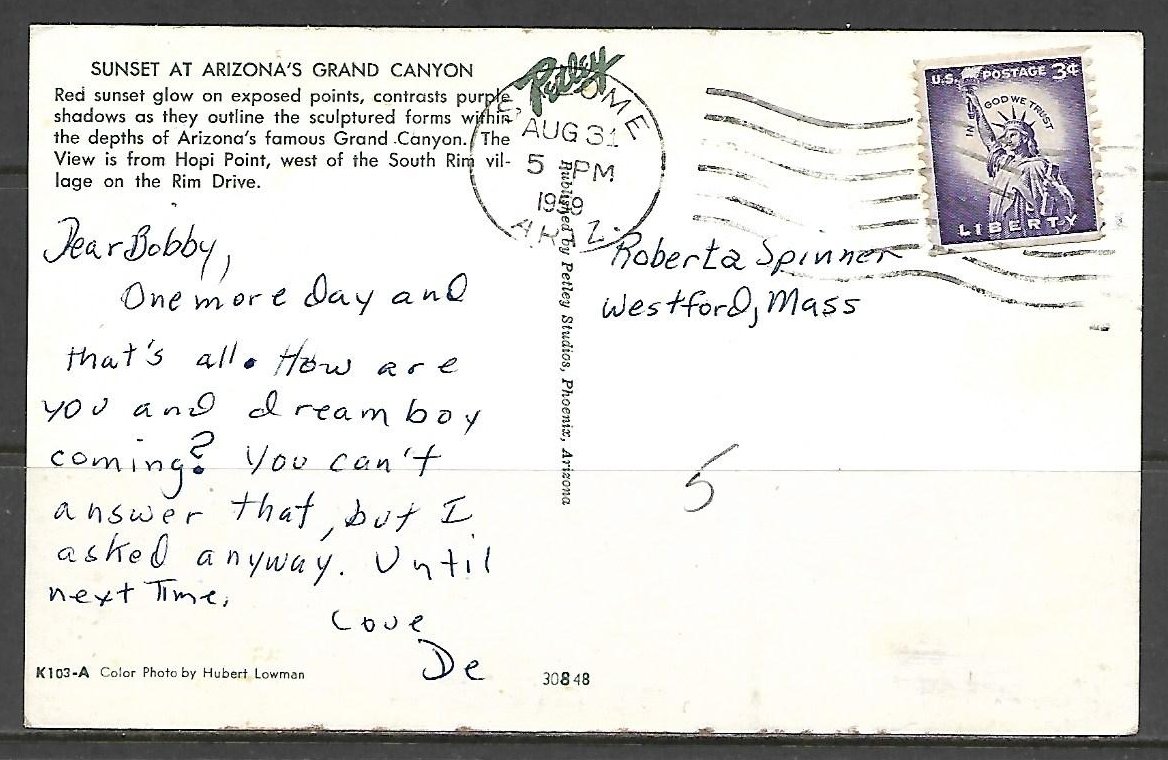 SUNSET AT ARIZONA'S GRAND CANYON
Red sunset glow on exposed points, contrasts purple
shadows as they outline the sculptured forms within
the depths of Arizona's famous Grand Canyon. The
View is from Hopi Point, west of the South Rim vil-
lage on the Rim Drive.
Petley
AUG 31
5 PM
1959
ARIZ.
U.S. POSTAGE 3¢
IN GOD WE TRUST
LIBERTY
Dear Bobby,
One more day and
that's all. How are
you and dreamboy
coming? You can't
answer that, but I
asked anyway. Until
next Time,
Love
De
Published by Petley Studios, Phoenix, Arizona
Roberta Spinner
Westford, Mass
5
K103-A Color Photo by Hubert Lowman
30848